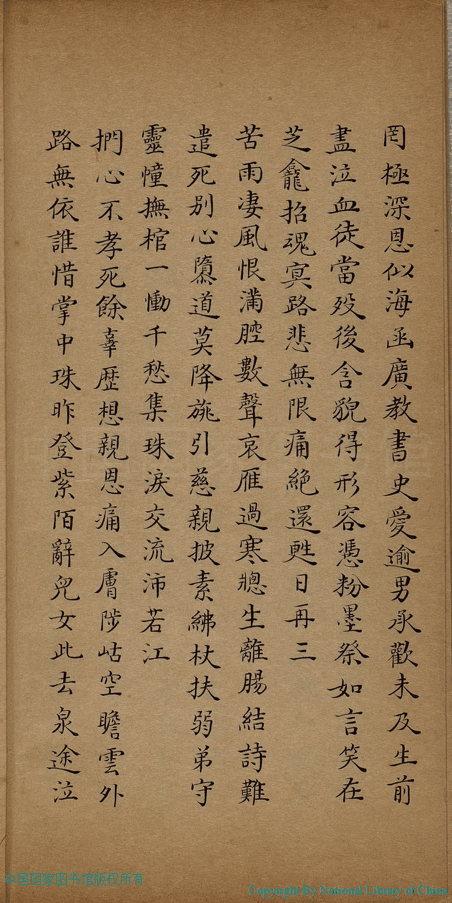 罔極深恩似海函廣教書史愛逾男承歡未及生前
盡泣血徒當歿後含貌得形容憑粉墨祭如言笑在
芝龕招魂冥路悲無限痛絶還甦日再三
苦雨凄風恨滿腔數聲哀雁過寒牕生離腸結詩難
遣死別心隳道莫降旐引慈親披素紼杖扶弱弟守
靈幢撫棺一慟千愁集珠淚交流沛若江
捫心不孝死餘辜歷想親恩痛入膚陟岵空瞻雲外
路無依誰惜掌中珠昨登紫陌辭兒女此去泉途泣
中国国家图书馆版权所有
Copyright By National Library of China